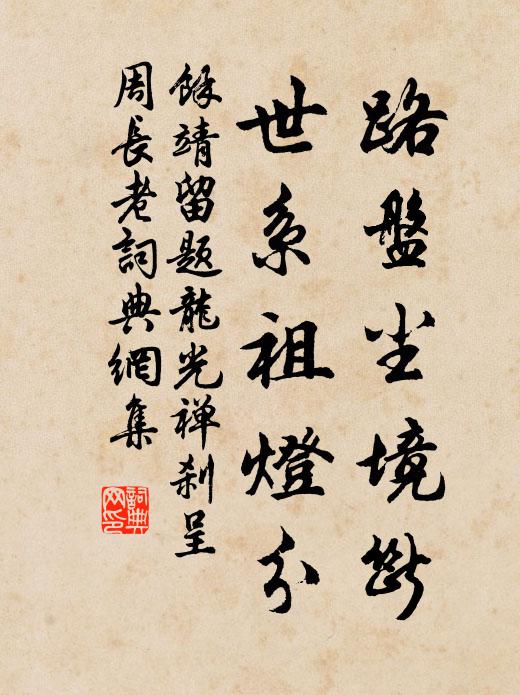 路盤尘境断
世系祖燈分
餘靖留题龍光禅刹呈
周長老詞典網集
詞典网印